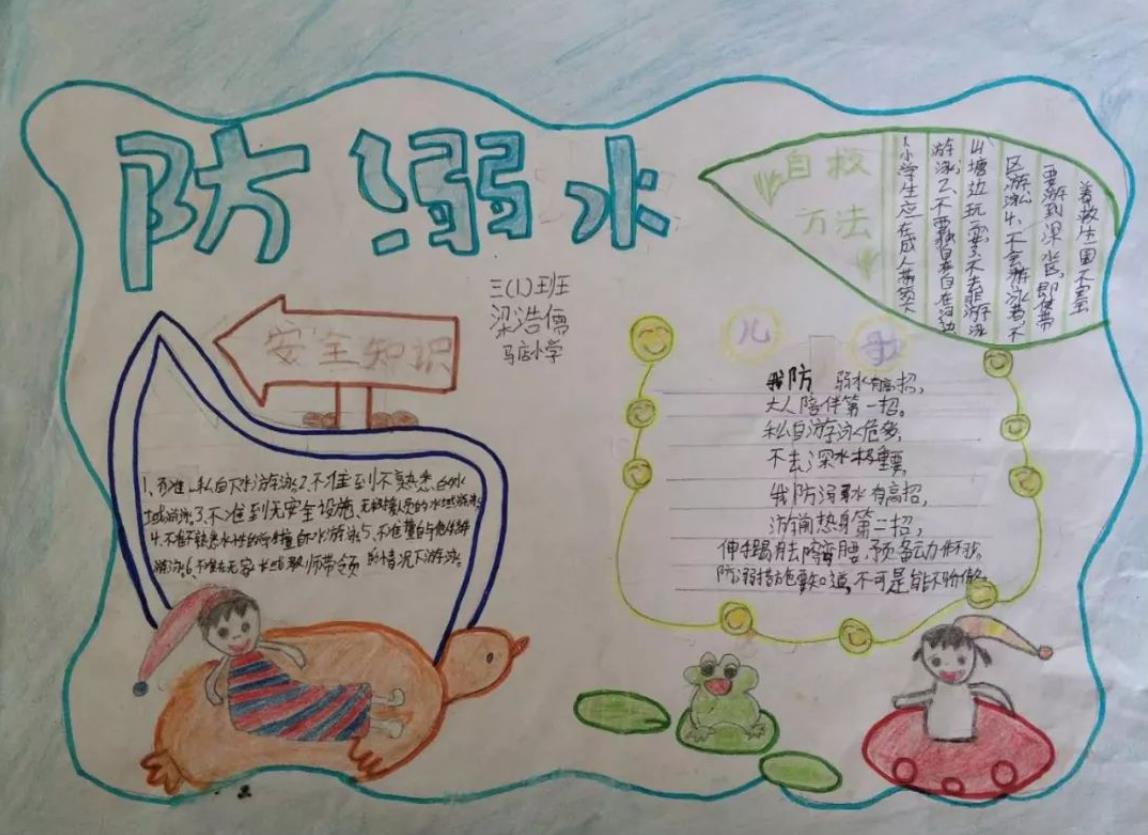 防溺水
三(1)班
梁浩儒
马店小学
自救
方法
1小学生应在成人带领下
游泳2、不要独自在河边
山塘边玩耍3不去非游泳
区游泳4、不会游泳者,不
要游到深水区,即使带
着救生圈不安全
安全知识
1、不准 私自下水游泳2、不准到不熟悉的水
域游泳。3、不准到无安全设施、无救援人员的水域游泳
4、不准不熟悉水性的学生擅自下水游泳5、不准擅自与他人结伴
游泳6、不准在无家长或教师带领 的情况下游泳。
儿歌
我防 溺水有高招,
大人陪伴第一招。
私自游泳危多,
不去深水极重要,
我防溺水有高招,
游前热身第二招,
伸手踢腿弯腰,预备动作
防溺措施要知道,不可是能不